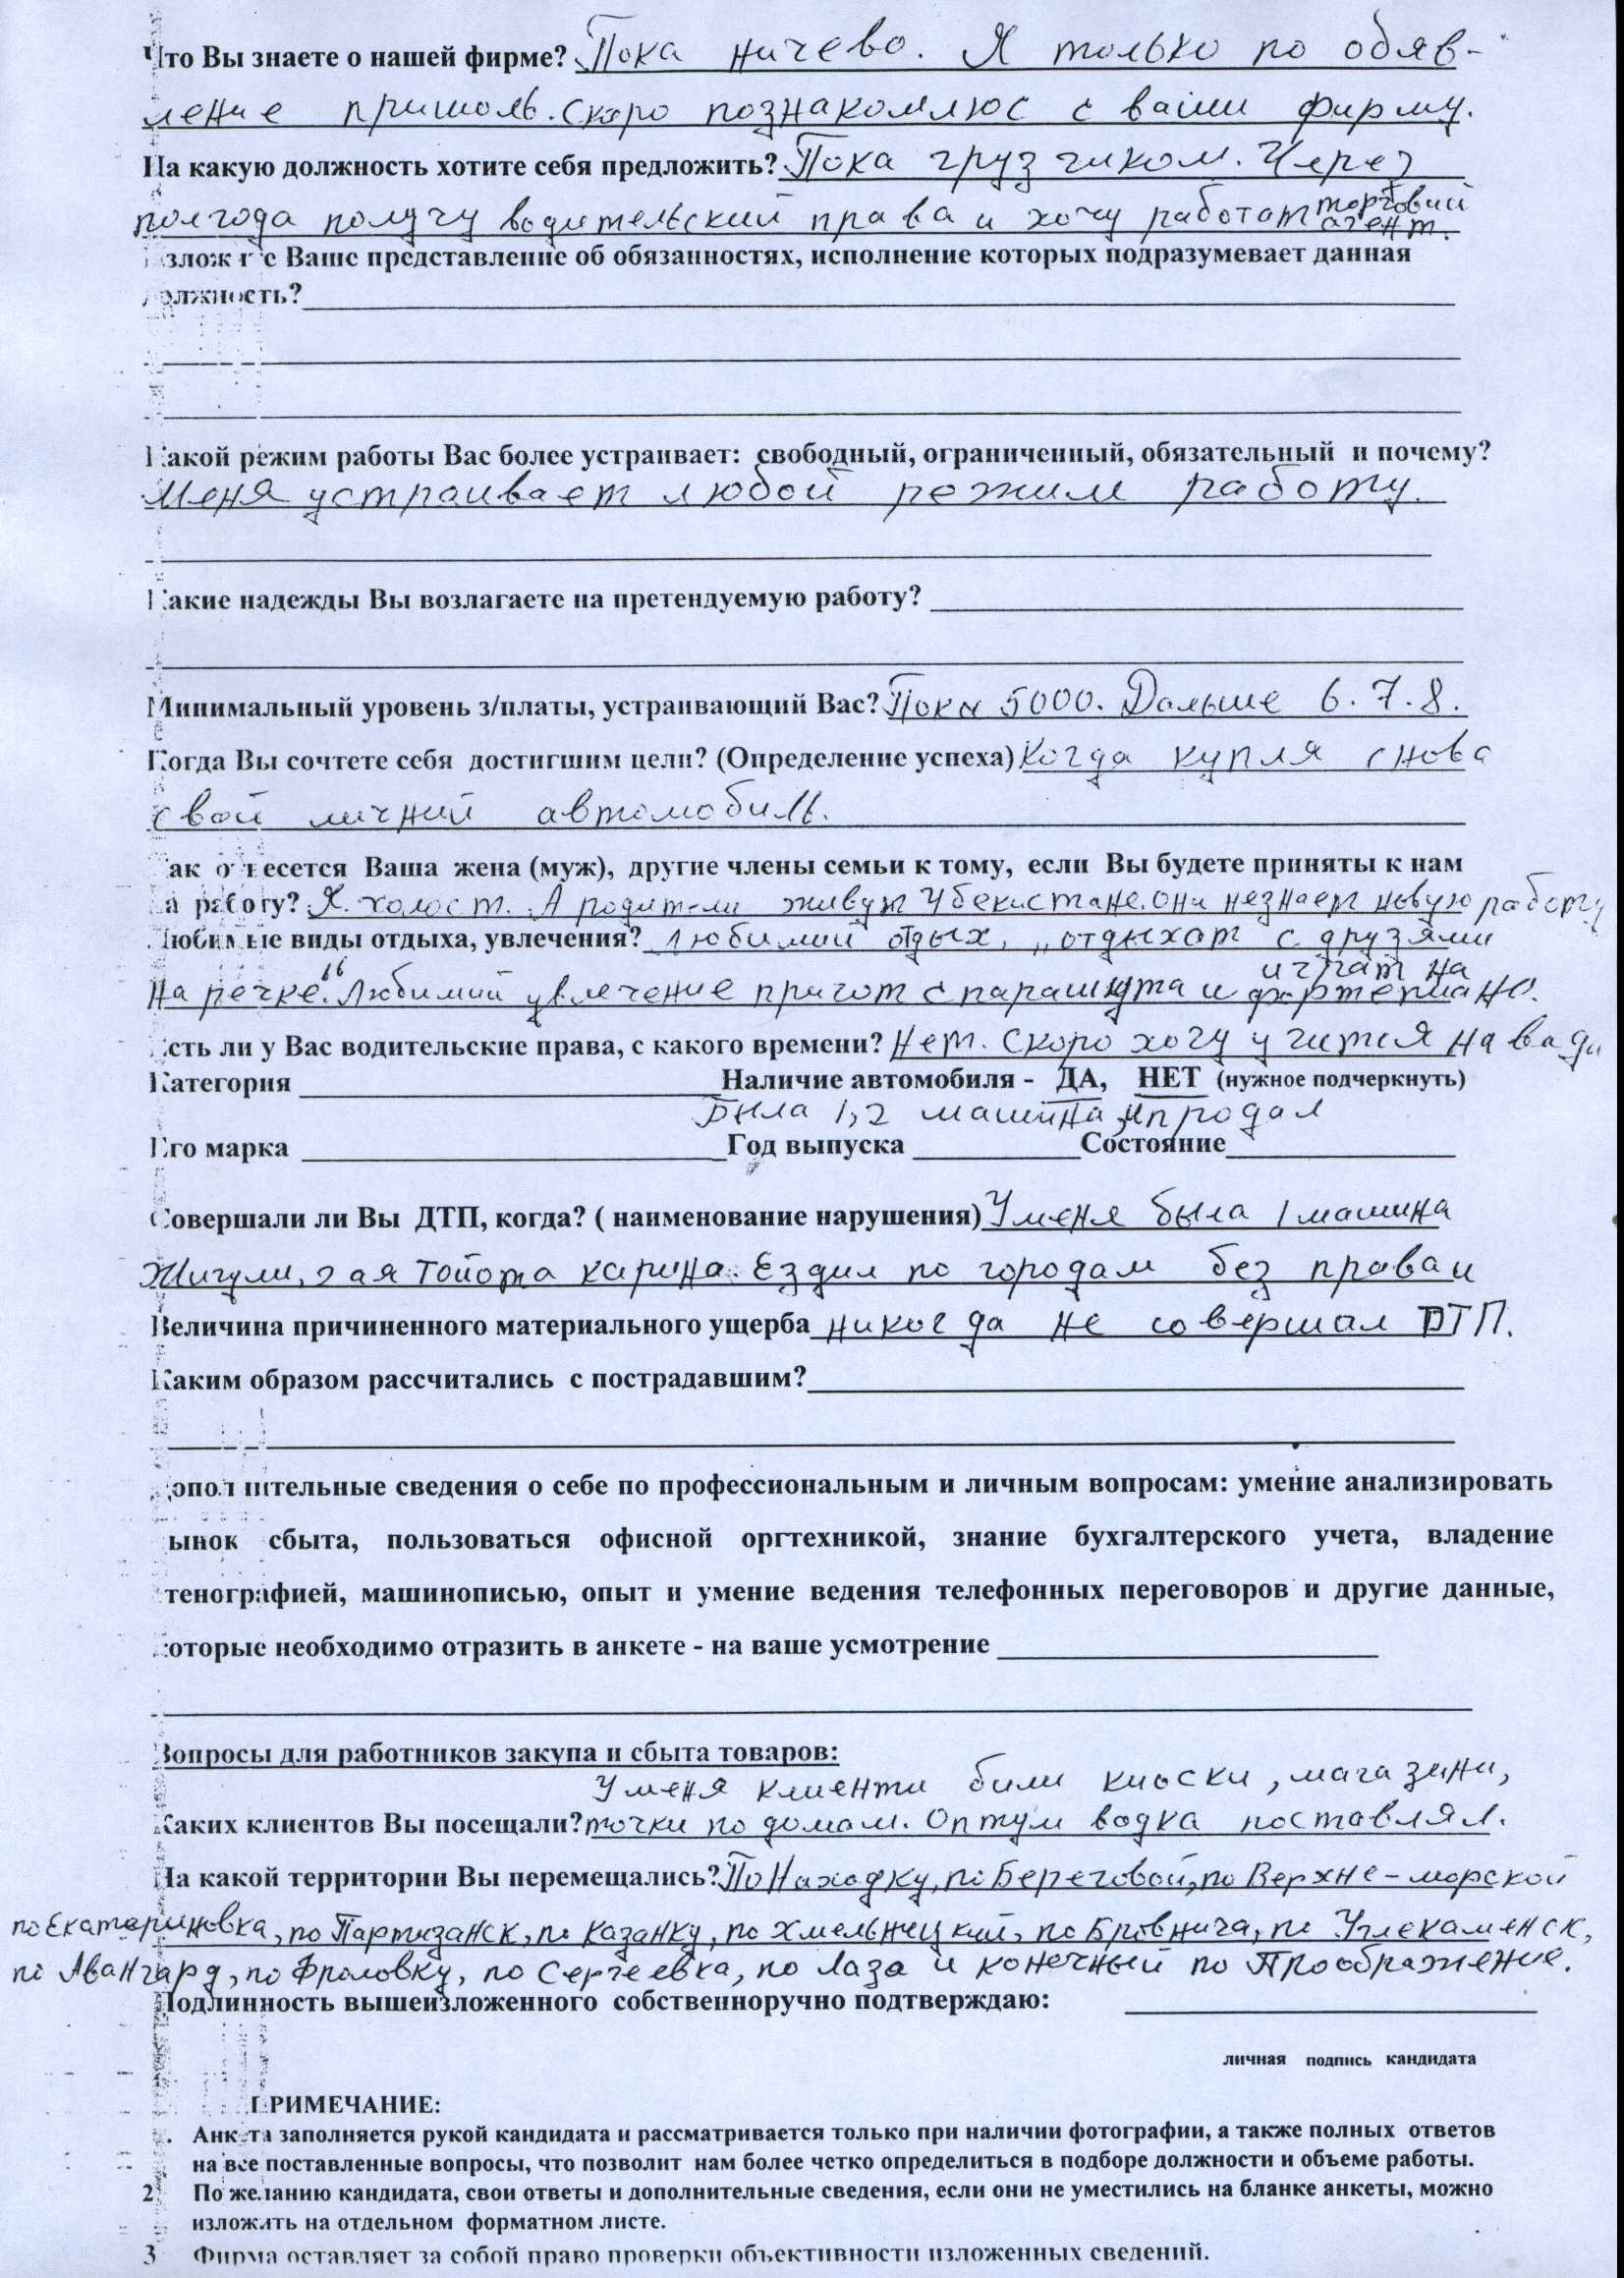 Что Вы знаете о нашей фирме? Пока ничево. Я только по обяв-
ление пришоль. Скоро познакомлюс с ваши фирму.
На какую должность хотите себя предложить? Пока грузчиком. Через
полгода получу водительский права и хочу работат торговий
агент.
Изложите Ваше представление об обязанностях, исполнение которых подразумевает данная
должность?
Какой режим работы Вас более устраивает: свободный, ограниченный, обязательный и почему?
Меня устраивает любой режим работу.
Какие надежды Вы возлагаете на претендуемую работу?
Минимальный уровень з/платы, устраивающий Вас? Пока 5000. Дальше 6. 7. 8.
Когда Вы сочтете себя достигшим цели? (Определение успеха) Когда купля снова
свой личний автомобиль.
Как отнесется Ваша жена (муж), другие члены семьи к тому, если Вы будете приняты к нам
на работу? Я холост. А родители живут Убекистане. Они незнает новую работу
Любимые виды отдыха, увлечения? Любимий отдых, „отдыхат с друзями
на речке". Любимий увлечение пригот с парашюта и играт на
фортепиано.
Есть ли у Вас водительские права, с какого времени? Нет. Скоро хочу учится на вади
Категория Наличие автомобиля - ДА, НЕТ (нужное подчеркнуть)
Была 1,2 машина, продал
Его марка Год выпуска Состояние
Совершали ли Вы ДТП, когда? ( наименование нарушения) У меня была 1 машина
Жигули, 2 ая Тойота карина. Ездил по городам без права и
Величина причиненного материального ущерба никогда не совершал ДТП.
Каким образом рассчитались с пострадавшим?
Дополнительные сведения о себе по профессиональным и личным вопросам: умение анализировать
рынок сбыта, пользоваться офисной оргтехникой, знание бухгалтерского учета, владение
стенографией, машинописью, опыт и умение ведения телефонных переговоров и другие данные,
которые необходимо отразить в анкете - на ваше усмотрение
Вопросы для работников закупа и сбыта товаров:
У меня клиенти били киоски, магазини,
Каких клиентов Вы посещали? точки по домам. Оптум водка поставлял.
На какой территории Вы перемещались? По Находку, по Береговой, по Верхне-морской
по Екатериновка, по Партизанск, по Казанку, по Хмельнецкий, по Бровнича, по Углекаменск,
по Авангард, по Фроловку, по Сергеевка, по Лаза и конечный по Прображение.
Подлинность вышеизложенного собственноручно подтверждаю:
личная подпись кандидата
ПРИМЕЧАНИЕ:
. Анкета заполняется рукой кандидата и рассматривается только при наличии фотографии, а также полных ответов
на все поставленные вопросы, что позволит нам более четко определиться в подборе должности и объеме работы.
2 По желанию кандидата, свои ответы и дополнительные сведения, если они не уместились на бланке анкеты, можно
изложить на отдельном форматном листе.
3 Фирма оставляет за собой право проверки объективности изложенных сведений.